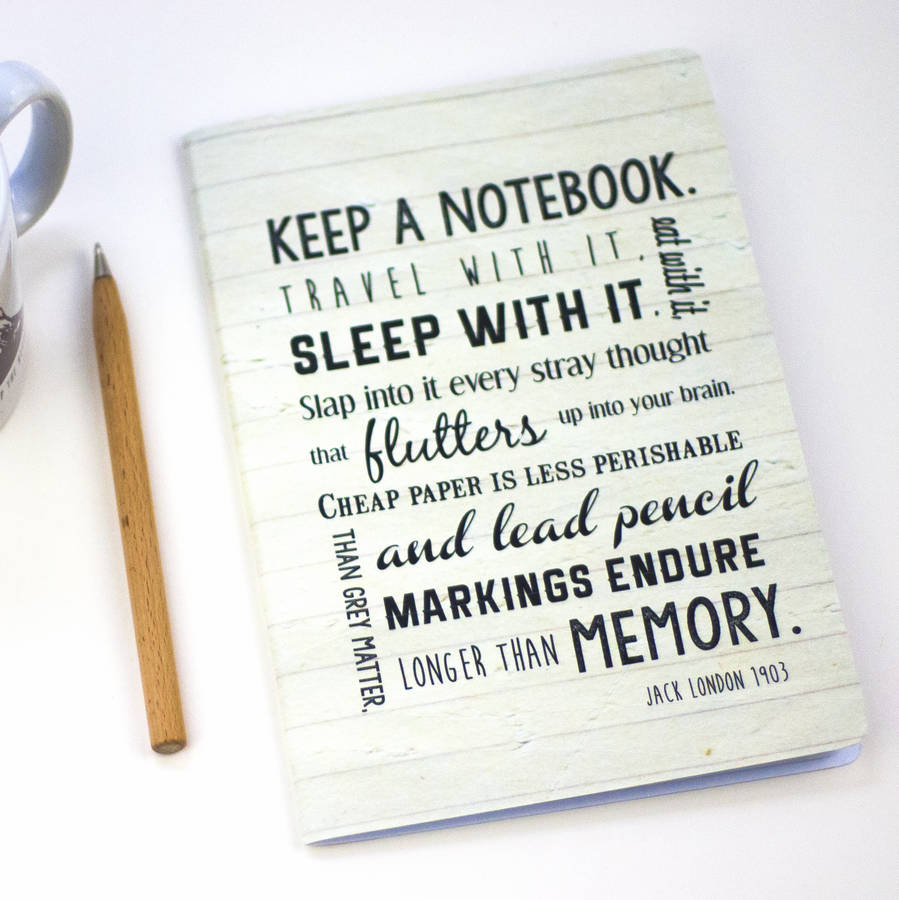 KEEP A NOTEBOOK.
TRAVEL WITH IT.
eat with it.
SLEEP WITH IT.
Slap into it every stray thought
that flutters up into your brain.
CHEAP PAPER IS LESS PERISHABLE
THAN GREY MATTER,
and lead pencil
MARKINGS ENDURE
LONGER THAN MEMORY.
JACK LONDON 1903